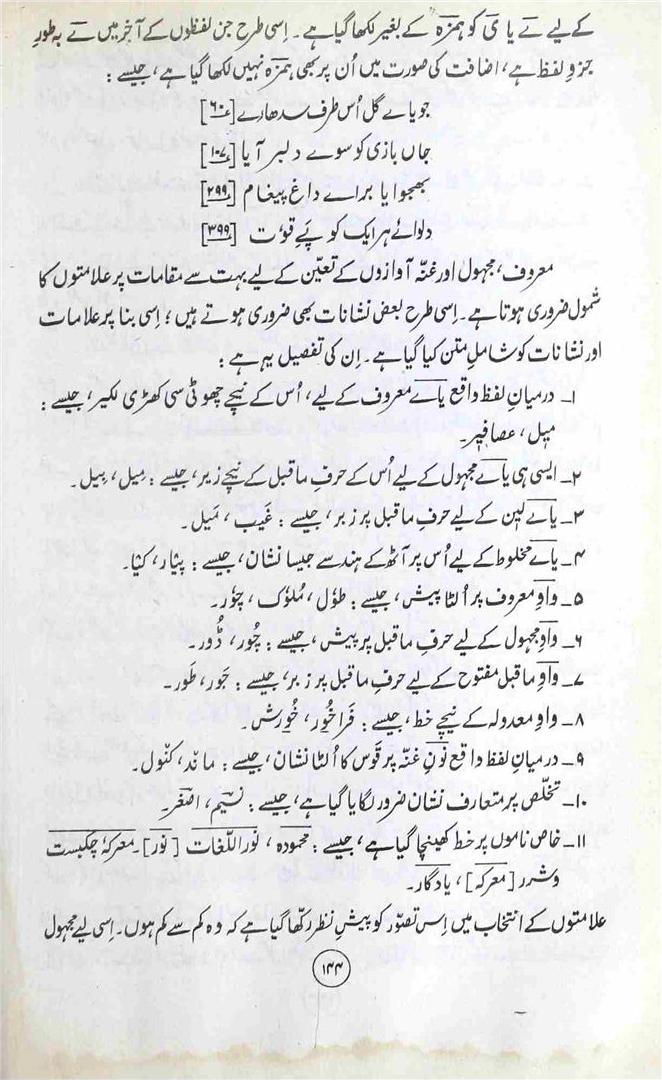 کے لیے ئے یا ئی کو ہمزہ کے بغیر لکھا گیا ہے۔ اِسی طرح جن لفظوں کے آخر میں ے بہ طورِ
جزوِ لفظ ہے، اضافت کی صورت میں اُن پر بھی ہمزہ نہیں لکھا گیا ہے، جیسے:
جویاے گل اُس طرف سدھارے [۶۰]
جاں بازی کو سوے دلبر آیا [۱۰۷]
بھجوایا براے داغ پیغام [۲۹۹]
دلوائے ہر ایک کو پَے قوّت [۳۹۹]
معروف، مجہول اور غنّہ آوازوں کے تعیّن کے لیے بہت سے مقامات پر علامتوں کا
شمول ضروری ہوتا ہے۔ اِسی طرح بعض نشانات بھی ضروری ہوتے ہیں؛ اِسی بنا پر علامات
اور نشانات کو شاملِ متن کیا گیا ہے۔ اِن کی تفصیل یہ ہے:
۱۔ درمیانِ لفظ واقع یاے معروف کے لیے، اُس کے نیچے چھوٹی سی کھڑی لکیر، جیسے:
میٖل، عصافیٖر۔
۲۔ ایسی ہی یاے مجہول کے لیے اُس کے حرفِ ماقبل کے نیچے زیر، جیسے: مِیل، بِیل۔
۳۔ یاے لین کے لیے حرفِ ماقبل پر زبر، جیسے: غَیب، مَیل۔
۴۔ یاے مخلوط کے لیے اُس پر آٹھ کے ہندسے جیسا نشان، جیسے: پیٛار، کیٛا۔
۵۔ واوِ معروف پر اُلٹا پیش، جیسے: طوٗل، مُلوٗک، چوٗر۔
۶۔ واوِ مجہول کے لیے حرفِ ماقبل پر پیش، جیسے: چُور، ڈُور۔
۷۔ واوِ ماقبل مفتوح کے لیے حرفِ ماقبل پر زبر، جیسے: جَور، طَور۔
۸۔ واوِ معدولہ کے نیچے خط، جیسے: فراخوٖر، خوٖرش۔
۹۔ درمیانِ لفظ واقع نونِ غنّہ پر قوس کا اُلٹا نشان، جیسے: مان٘د، کن٘ول۔
۱۰۔ تخلّص پر متعارف نشان ضرور لگایا گیا ہے، جیسے: نسیمؔ، اصغرؔ۔
۱۱۔ خاص ناموں پر خط کھینچا گیا ہے، جیسے: محمودہ، نور اللّغات [نور]۔ معرکۂ چکبست
و شرر [معرکہ]، یادگار۔
علامتوں کے انتخاب میں اِس تصوّر کو پیشِ نظر رکھّا گیا ہے کہ وہ کم سے کم ہوں۔ اِسی لیے مجہول
۱۴۴